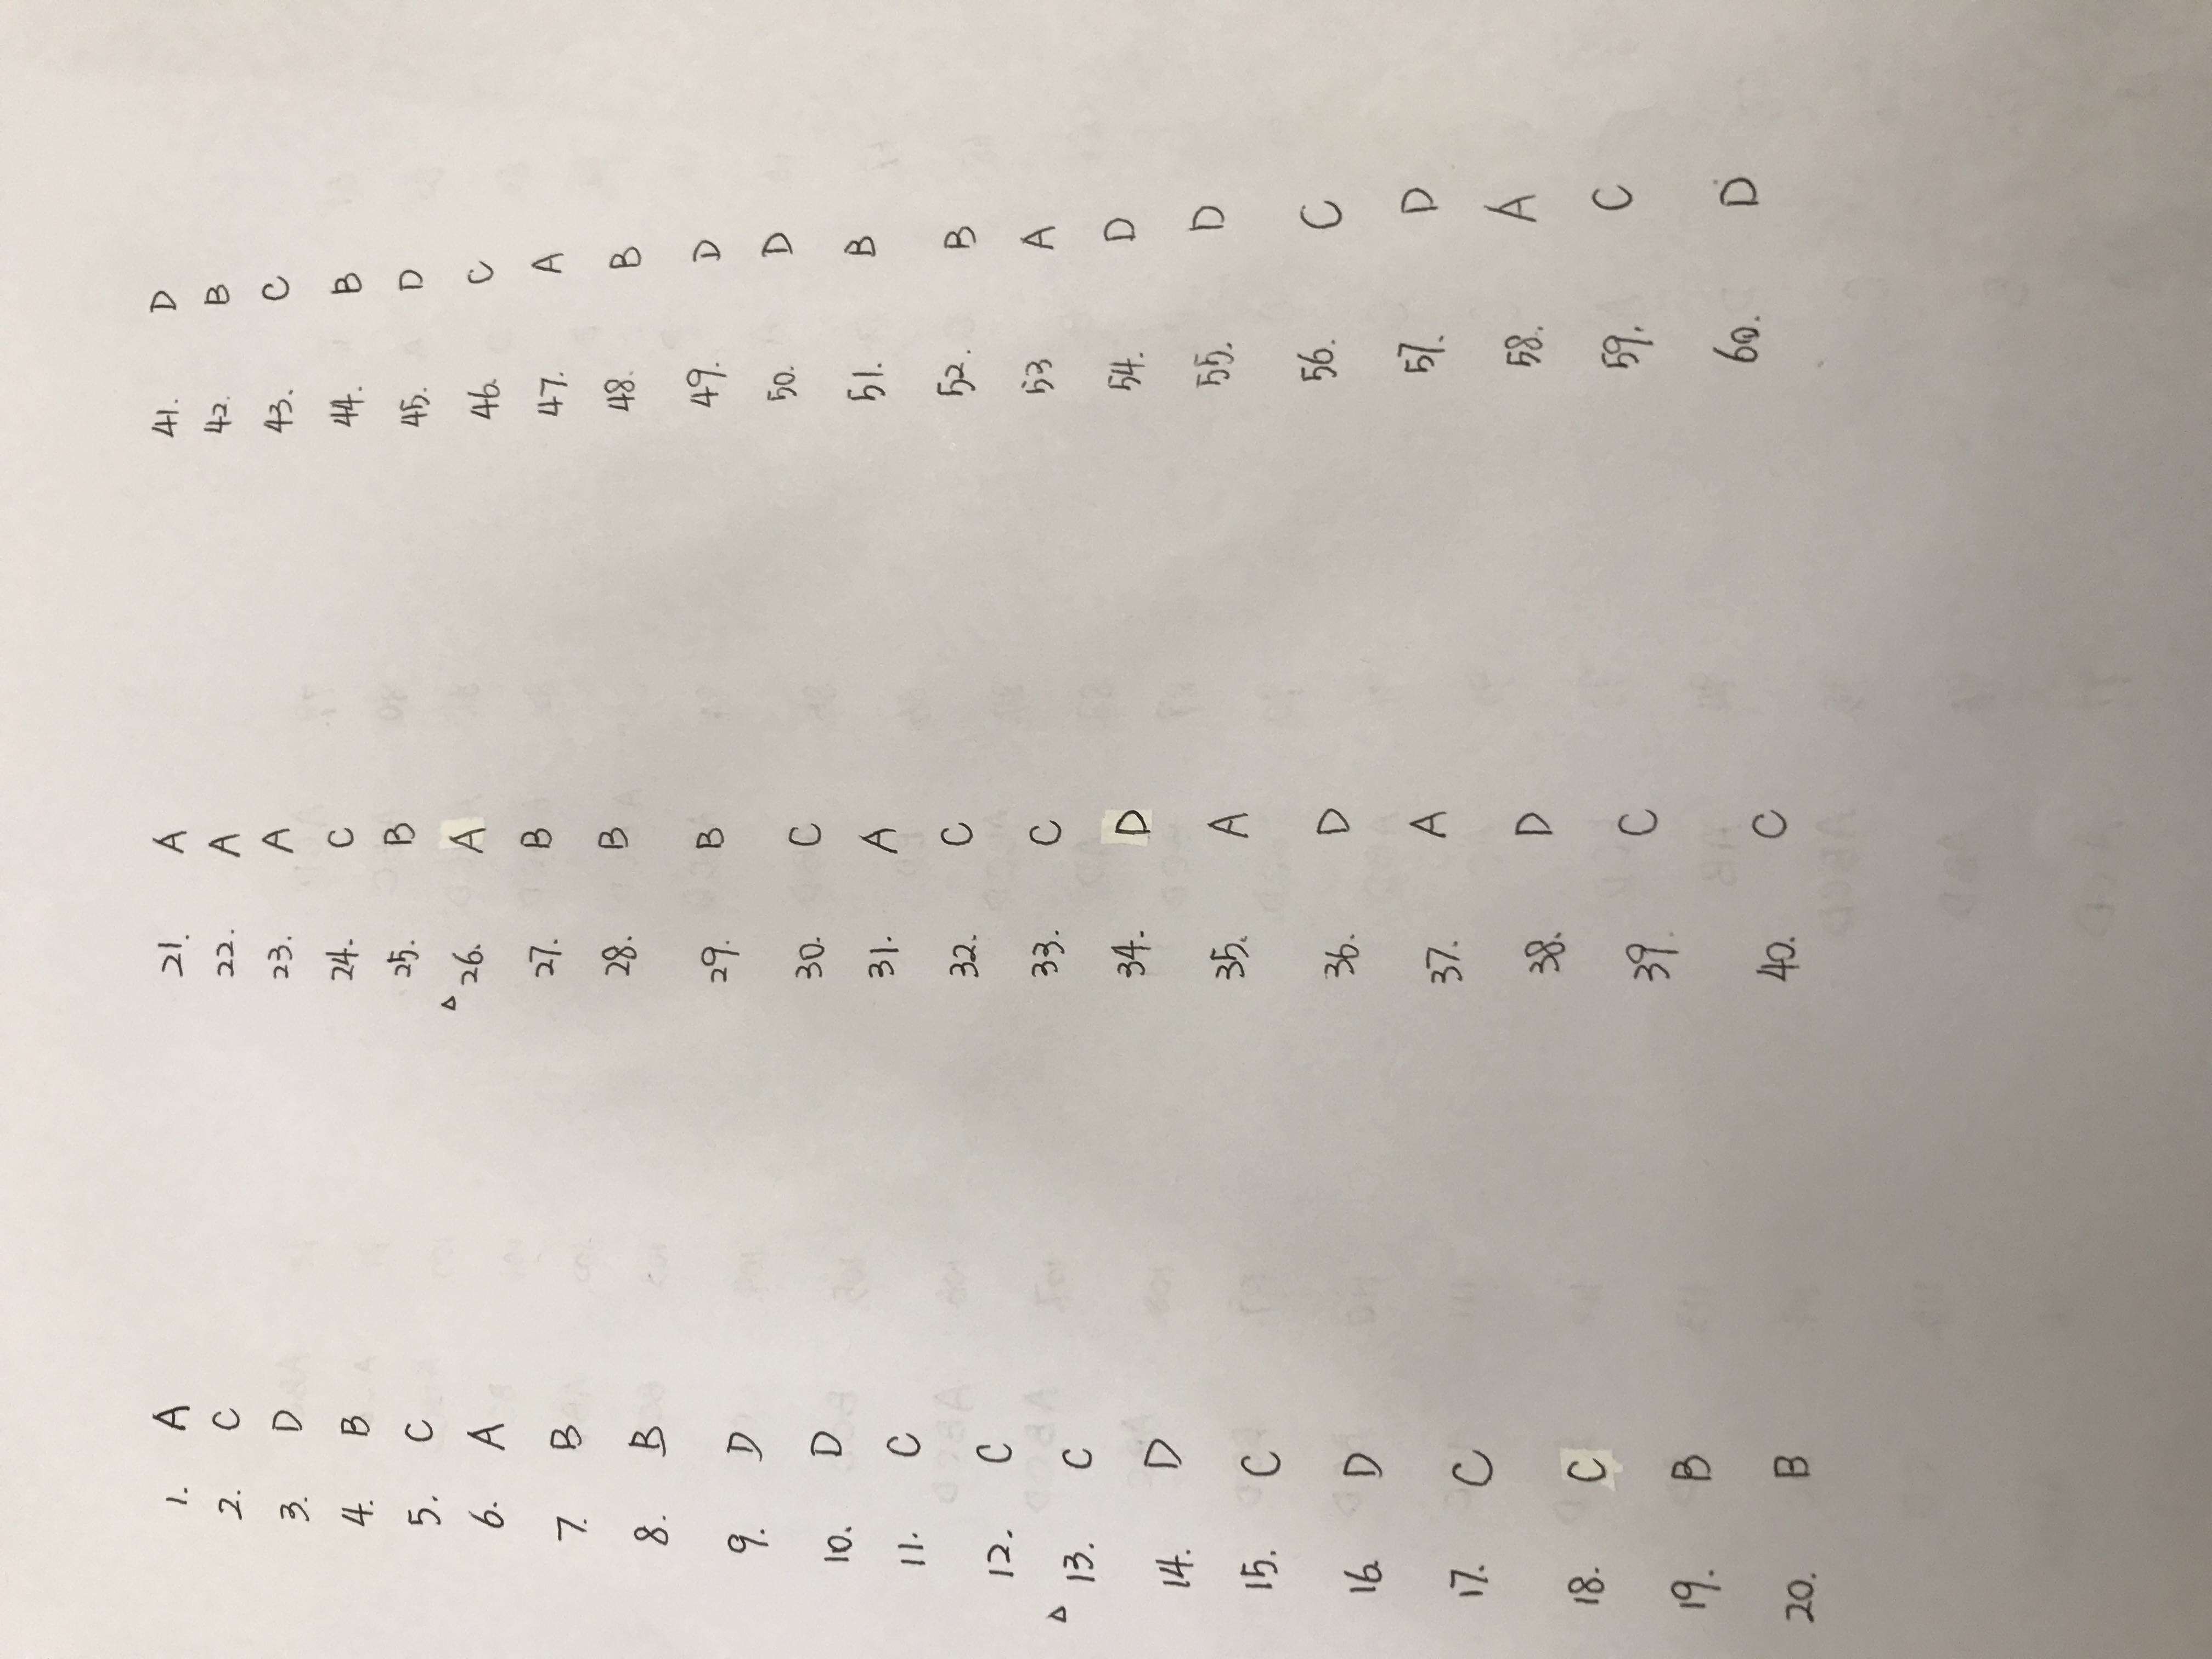 1. A
2. C
3. D
4. B
5. C
6. A
7. B
8. B
9. D
10. D
11. C
12. C
△ 13. C
14. D
15. C
16. D
17. C
18. C
19. B
20. B
21. A
22. A
23. A
24. C
25. B
△ 26. A
27. B
28. B
29. B
30. C
31. A
32. C
33. C
34. D
35. A
36. D
37. A
38. D
39. C
40. C
41. D
42. B
43. C
44. B
45. D
46. C
47. A
48. B
49. D
50. D
51. B
52. B
53 A
54. D
55. D
56. C
57. D
58. A
59. C
60. D